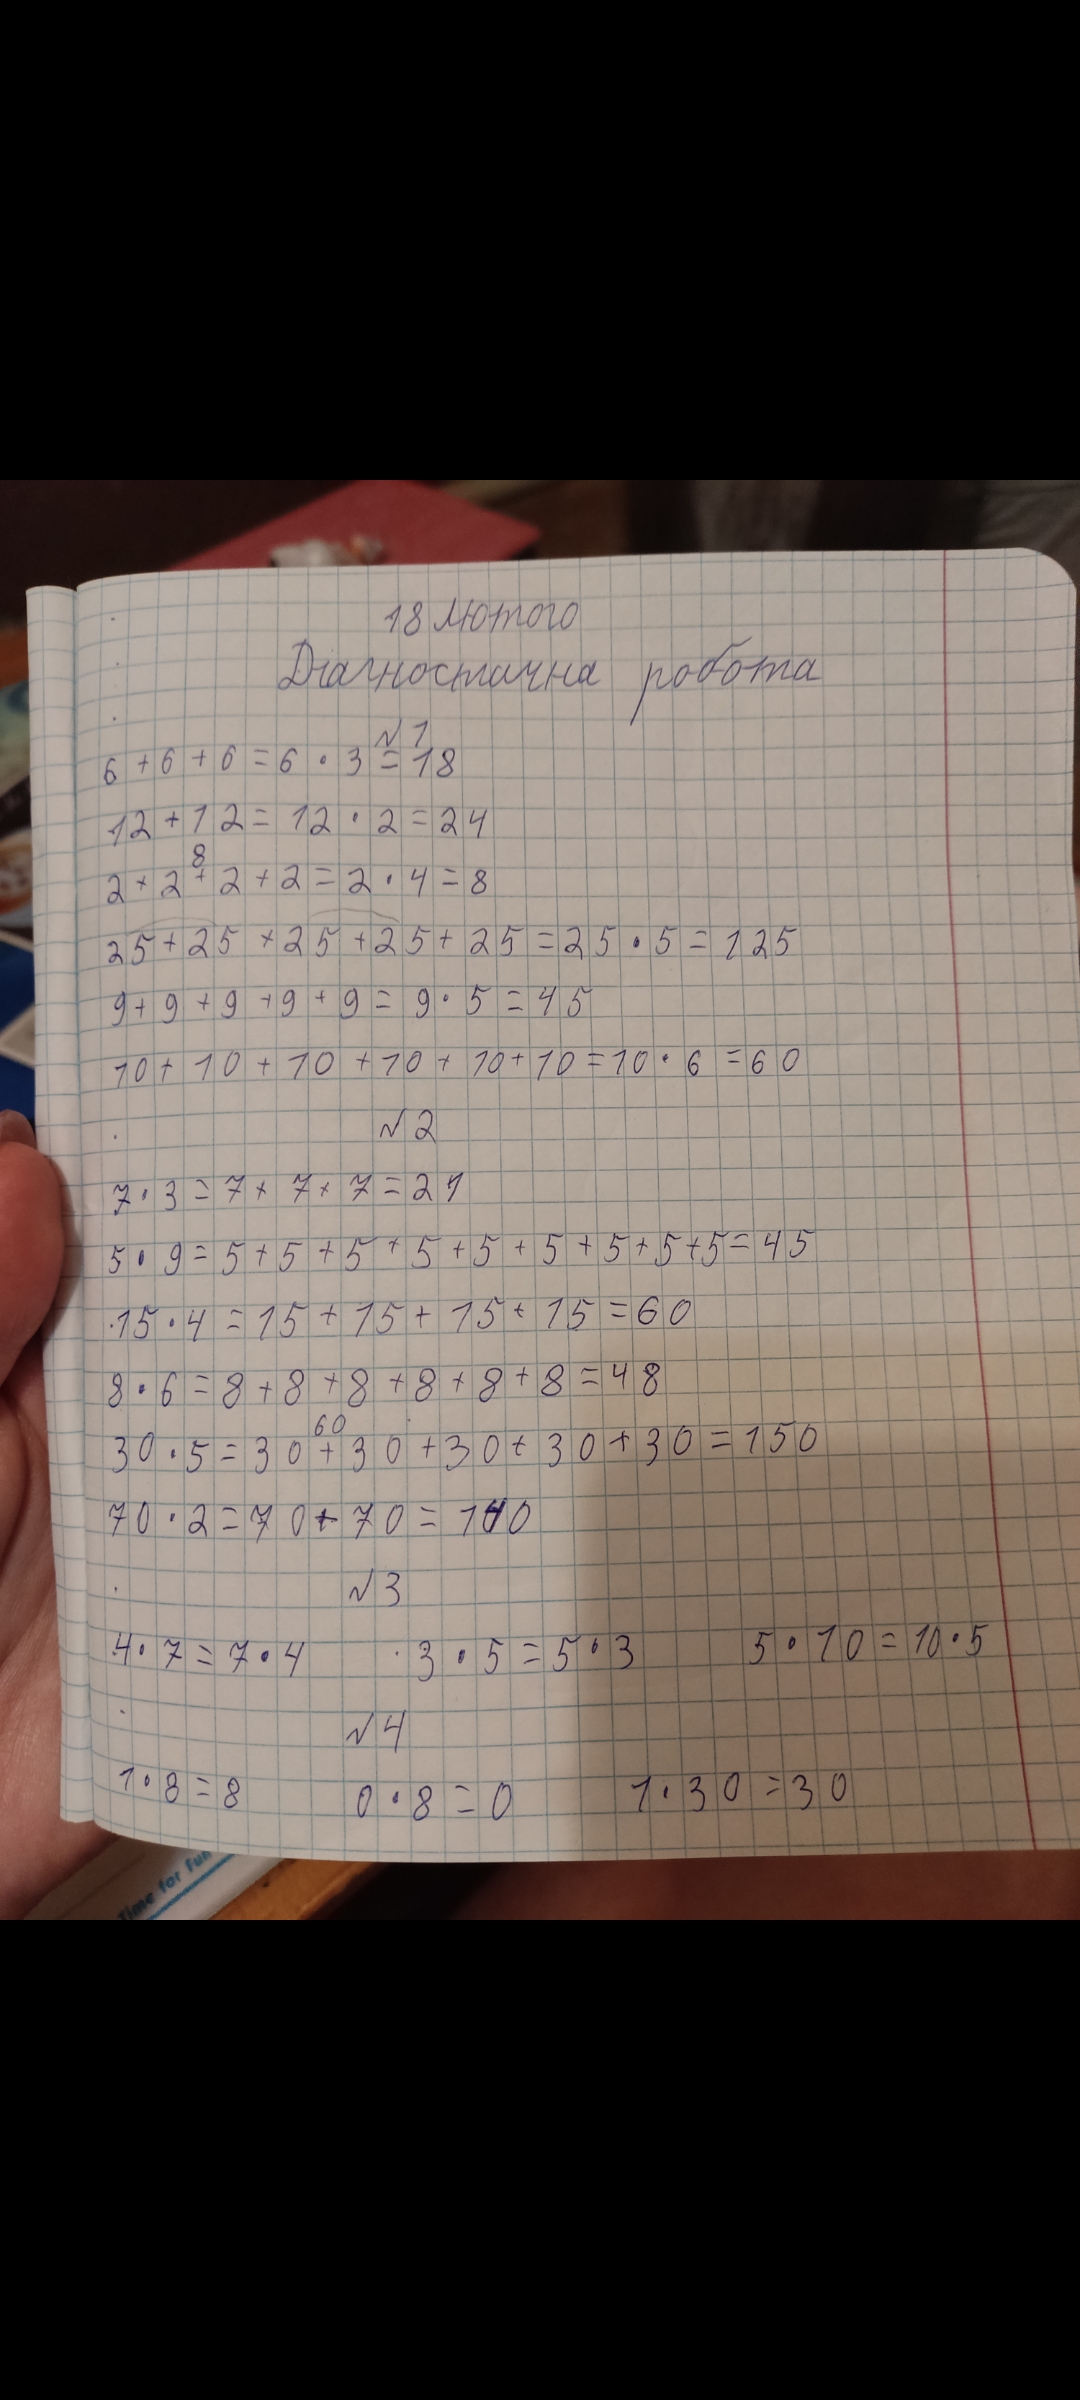 18 лютого
Діагностична робота
№1
6 + 6 + 6 = 6 · 3 = 18
12 + 12 = 12 · 2 = 24
8
2 + 2 + 2 + 2 = 2 · 4 = 8
25 + 25 + 25 + 25 + 25 = 25 · 5 = 125
9 + 9 + 9 + 9 + 9 = 9 · 5 = 45
10 + 10 + 10 + 10 + 10 + 10 = 10 · 6 = 60
№2
7 · 3 = 7 + 7 + 7 = 21
5 · 9 = 5 + 5 + 5 + 5 + 5 + 5 + 5 + 5 + 5 = 45
15 · 4 = 15 + 15 + 15 + 15 = 60
8 · 6 = 8 + 8 + 8 + 8 + 8 + 8 = 48
60
30 · 5 = 30 + 30 + 30 + 30 + 30 = 150
70 · 2 = 70 + 70 = 140
№3
4 · 7 = 7 · 4 3 · 5 = 5 · 3 5 · 10 = 10 · 5
№4
1 · 8 = 8 0 · 8 = 0 1 · 30 = 30
Time for fun